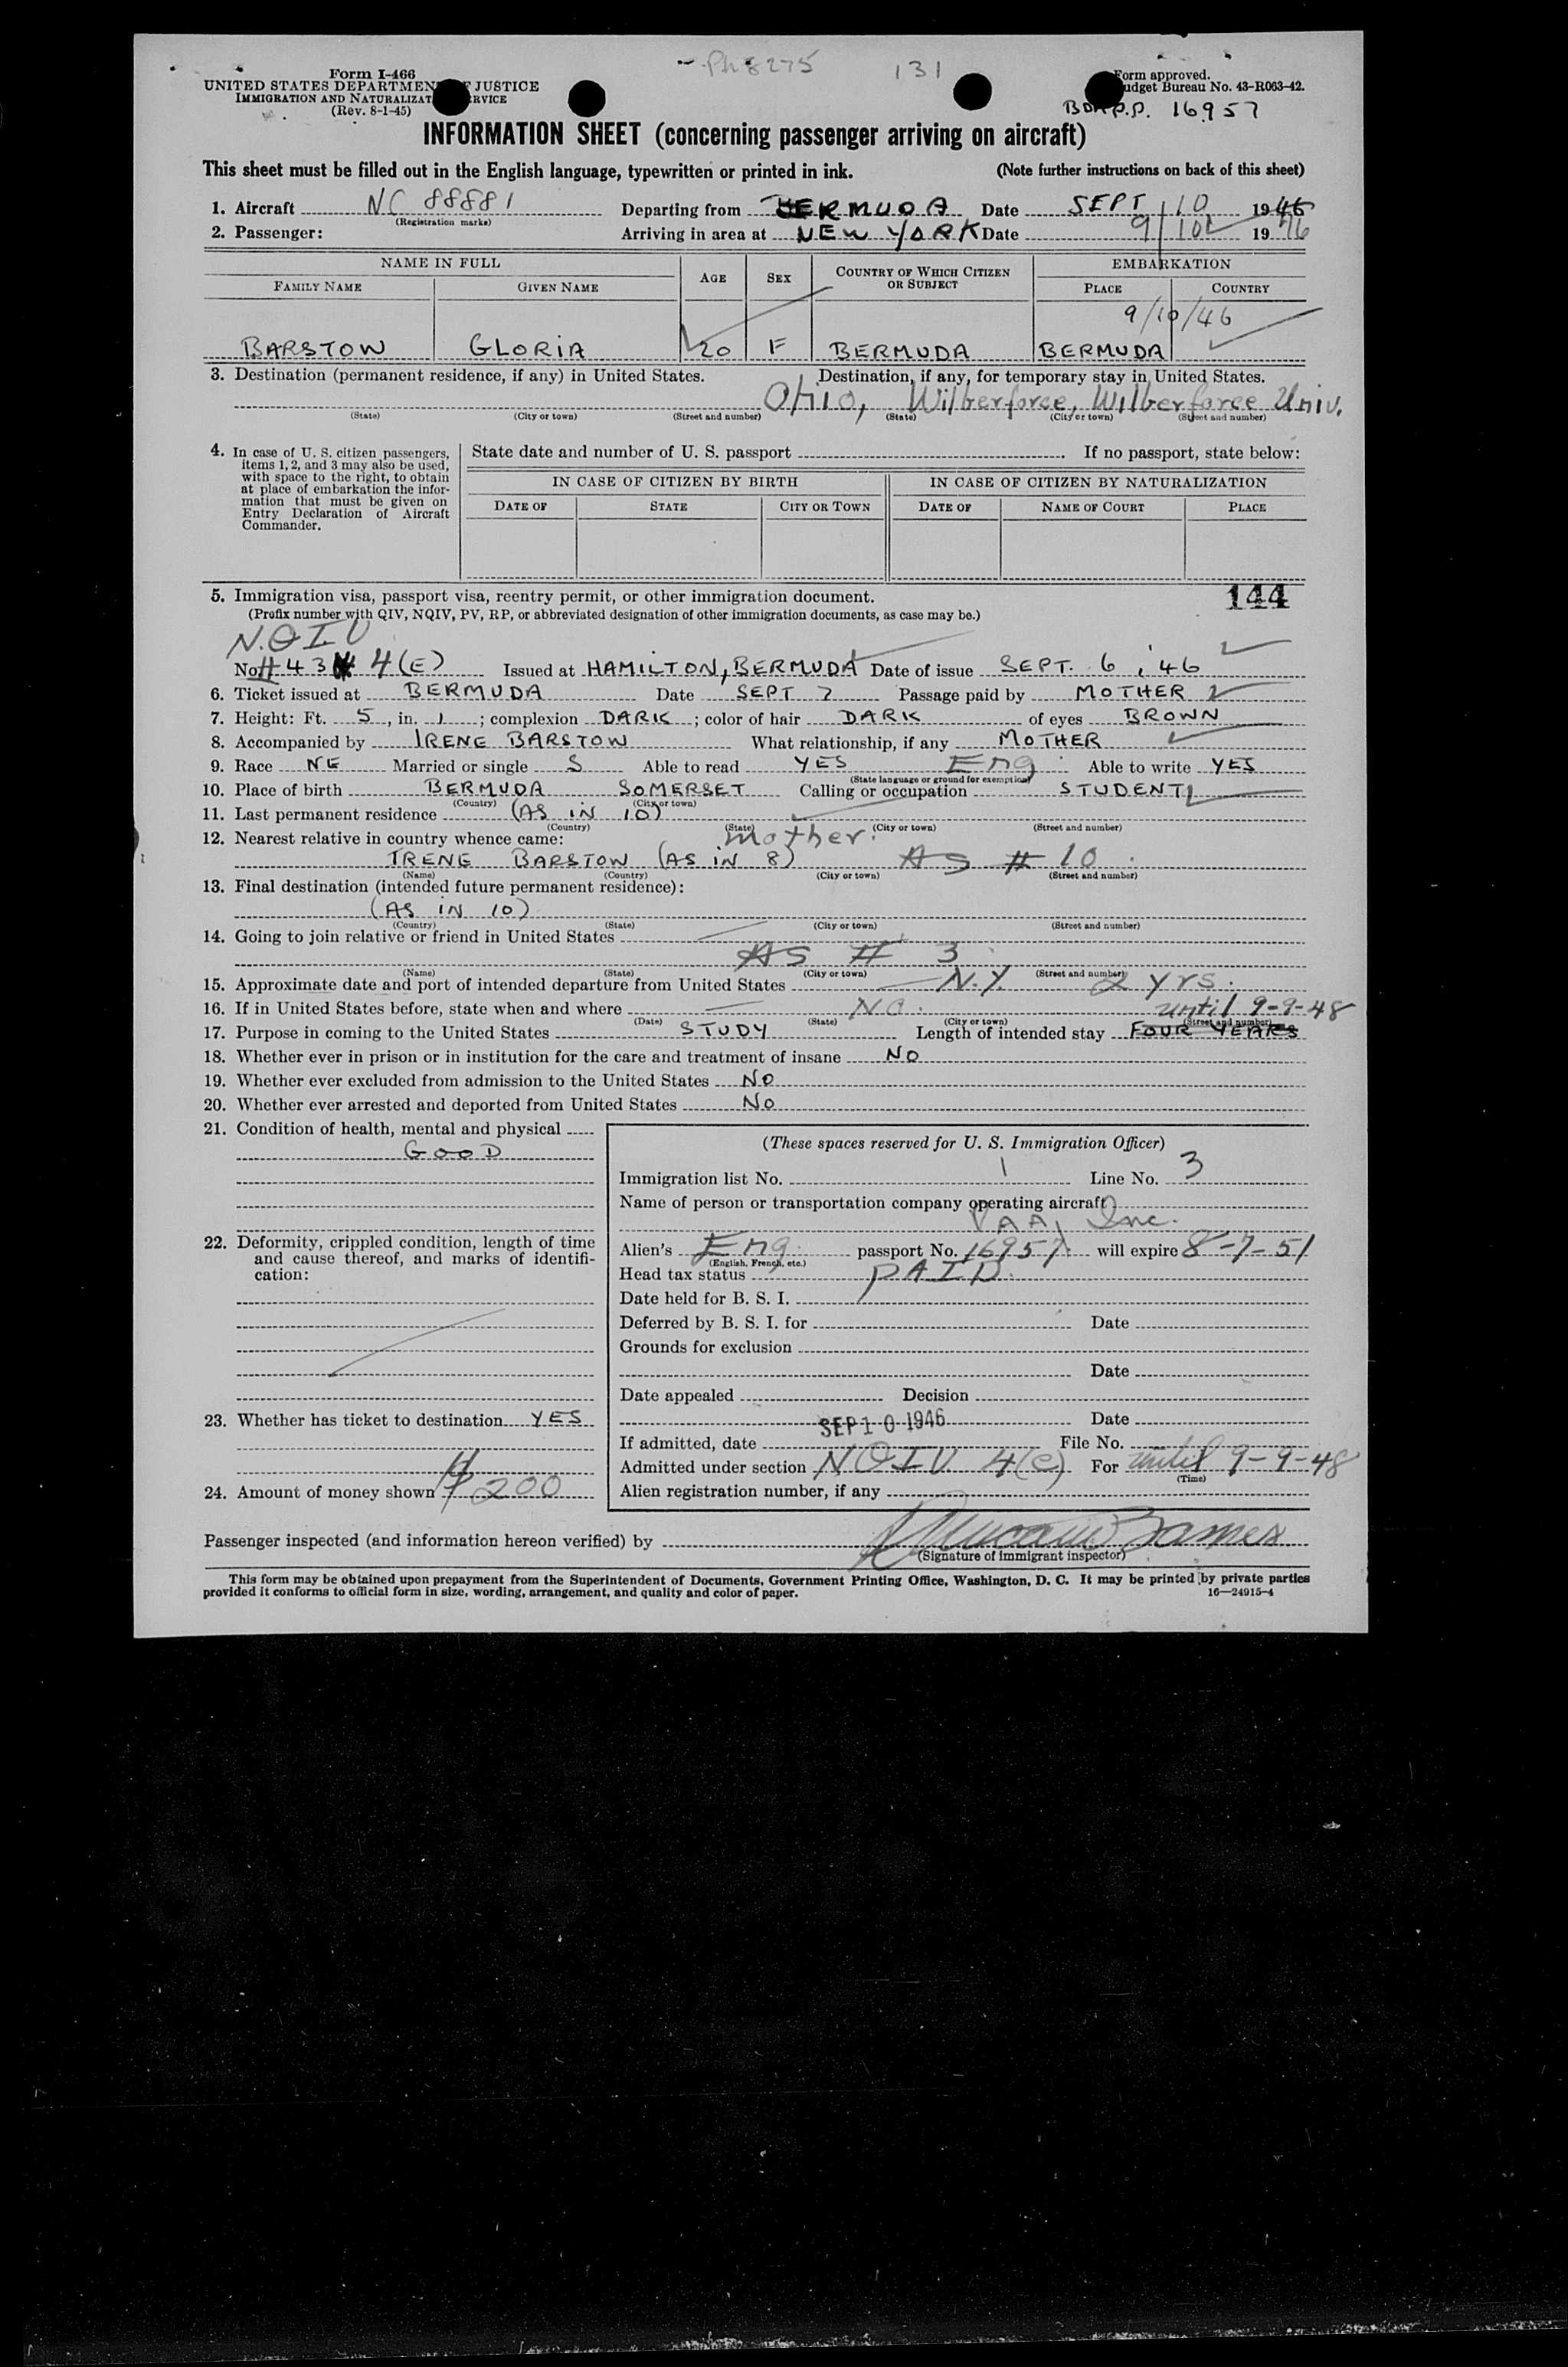 Ph 8275 131
Form I-466
UNITED STATES DEPARTMENT OF JUSTICE
IMMIGRATION AND NATURALIZATION SERVICE
(Rev. 8-1-45)
Form approved.
Budget Bureau No. 43-R063-42.
BDA P.P. 16957
INFORMATION SHEET (concerning passenger arriving on aircraft)
This sheet must be filled out in the English language, typewritten or printed in ink. (Note further instructions on back of this sheet)
1. Aircraft NC 88881 Departing from BERMUDA Date SEPT 10 1946
(Registration marks)
2. Passenger: Arriving in area at NEW YORK Date 9/10 1946
NAME IN FULL AGE SEX COUNTRY OF WHICH CITIZEN OR SUBJECT EMBARKATION
FAMILY NAME GIVEN NAME PLACE COUNTRY
9/10/46
BARSTOW GLORIA 20 F BERMUDA BERMUDA
3. Destination (permanent residence, if any) in United States. Destination, if any, for temporary stay in United States.
Ohio, Wilberforce, Wilberforce Univ.
(State) (City or town) (Street and number) (State) (City or town) (Street and number)
4. In case of U. S. citizen passengers, items 1, 2, and 3 may also be used, with space to the right, to obtain at place of embarkation the information that must be given on Entry Declaration of Aircraft Commander.
State date and number of U. S. passport If no passport, state below:
IN CASE OF CITIZEN BY BIRTH IN CASE OF CITIZEN BY NATURALIZATION
DATE OF STATE CITY OR TOWN DATE OF NAME OF COURT PLACE
5. Immigration visa, passport visa, reentry permit, or other immigration document. 144
(Prefix number with QIV, NQIV, PV, RP, or abbreviated designation of other immigration documents, as case may be.)
N.Q.I.V
No. #43 4(E) Issued at HAMILTON, BERMUDA Date of issue SEPT. 6, '46
6. Ticket issued at BERMUDA Date SEPT 7 Passage paid by MOTHER
7. Height: Ft. 5, in. 1; complexion DARK; color of hair DARK of eyes BROWN
8. Accompanied by IRENE BARSTOW What relationship, if any MOTHER
9. Race NE Married or single S Able to read YES Eng Able to write YES
(State language or ground for exemption)
10. Place of birth BERMUDA SOMERSET Calling or occupation STUDENT
(Country) (City or town)
11. Last permanent residence (AS IN 10)
(Country) (State) (City or town) (Street and number)
12. Nearest relative in country whence came: mother.
IRENE BARSTOW (AS IN 8) AS # 10
(Name) (Country) (City or town) (Street and number)
13. Final destination (intended future permanent residence):
(AS IN 10)
(Country) (State) (City or town) (Street and number)
14. Going to join relative or friend in United States
AS # 3
(Name) (State) (City or town) (Street and number)
15. Approximate date and port of intended departure from United States N.Y. 2 yrs.
16. If in United States before, state when and where No. until 9-9-48
(Date) (State) (City or town) (Street and number)
17. Purpose in coming to the United States STUDY Length of intended stay FOUR YEARS
18. Whether ever in prison or in institution for the care and treatment of insane NO
19. Whether ever excluded from admission to the United States NO
20. Whether ever arrested and deported from United States NO
21. Condition of health, mental and physical
GOOD
22. Deformity, crippled condition, length of time and cause thereof, and marks of identification:
23. Whether has ticket to destination YES
24. Amount of money shown $200
(These spaces reserved for U. S. Immigration Officer)
Immigration list No. 1 Line No. 3
Name of person or transportation company operating aircraft
PAA, Inc.
Alien's Eng. passport No. 16957 will expire 8-7-51
(English, French, etc.)
Head tax status PAID.
Date held for B. S. I.
Deferred by B. S. I. for Date
Grounds for exclusion
Date
Date appealed Decision
Date
If admitted, date SEP 10 1946 File No.
Admitted under section NQIV 4(e) For until 9-9-48
(Time)
Alien registration number, if any
Passenger inspected (and information hereon verified) by
(Signature of immigrant inspector)
This form may be obtained upon prepayment from the Superintendent of Documents, Government Printing Office, Washington, D. C. It may be printed by private parties
provided it conforms to official form in size, wording, arrangement, and quality and color of paper. 16—24915-4